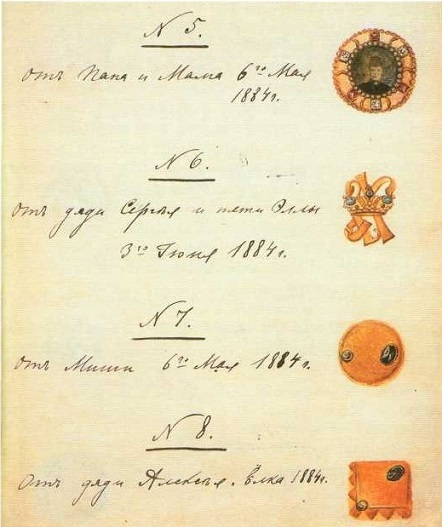 N 5.
отъ Папа и Мама 6го Мая
1884г.
N 6.
отъ дяди Сергѣя и тети Эллы
3го Iюня 1884г.
N 7.
отъ Миши 6го Мая 1884г.
N 8.
отъ дяди Алексѣя. Ёлка 1884г.